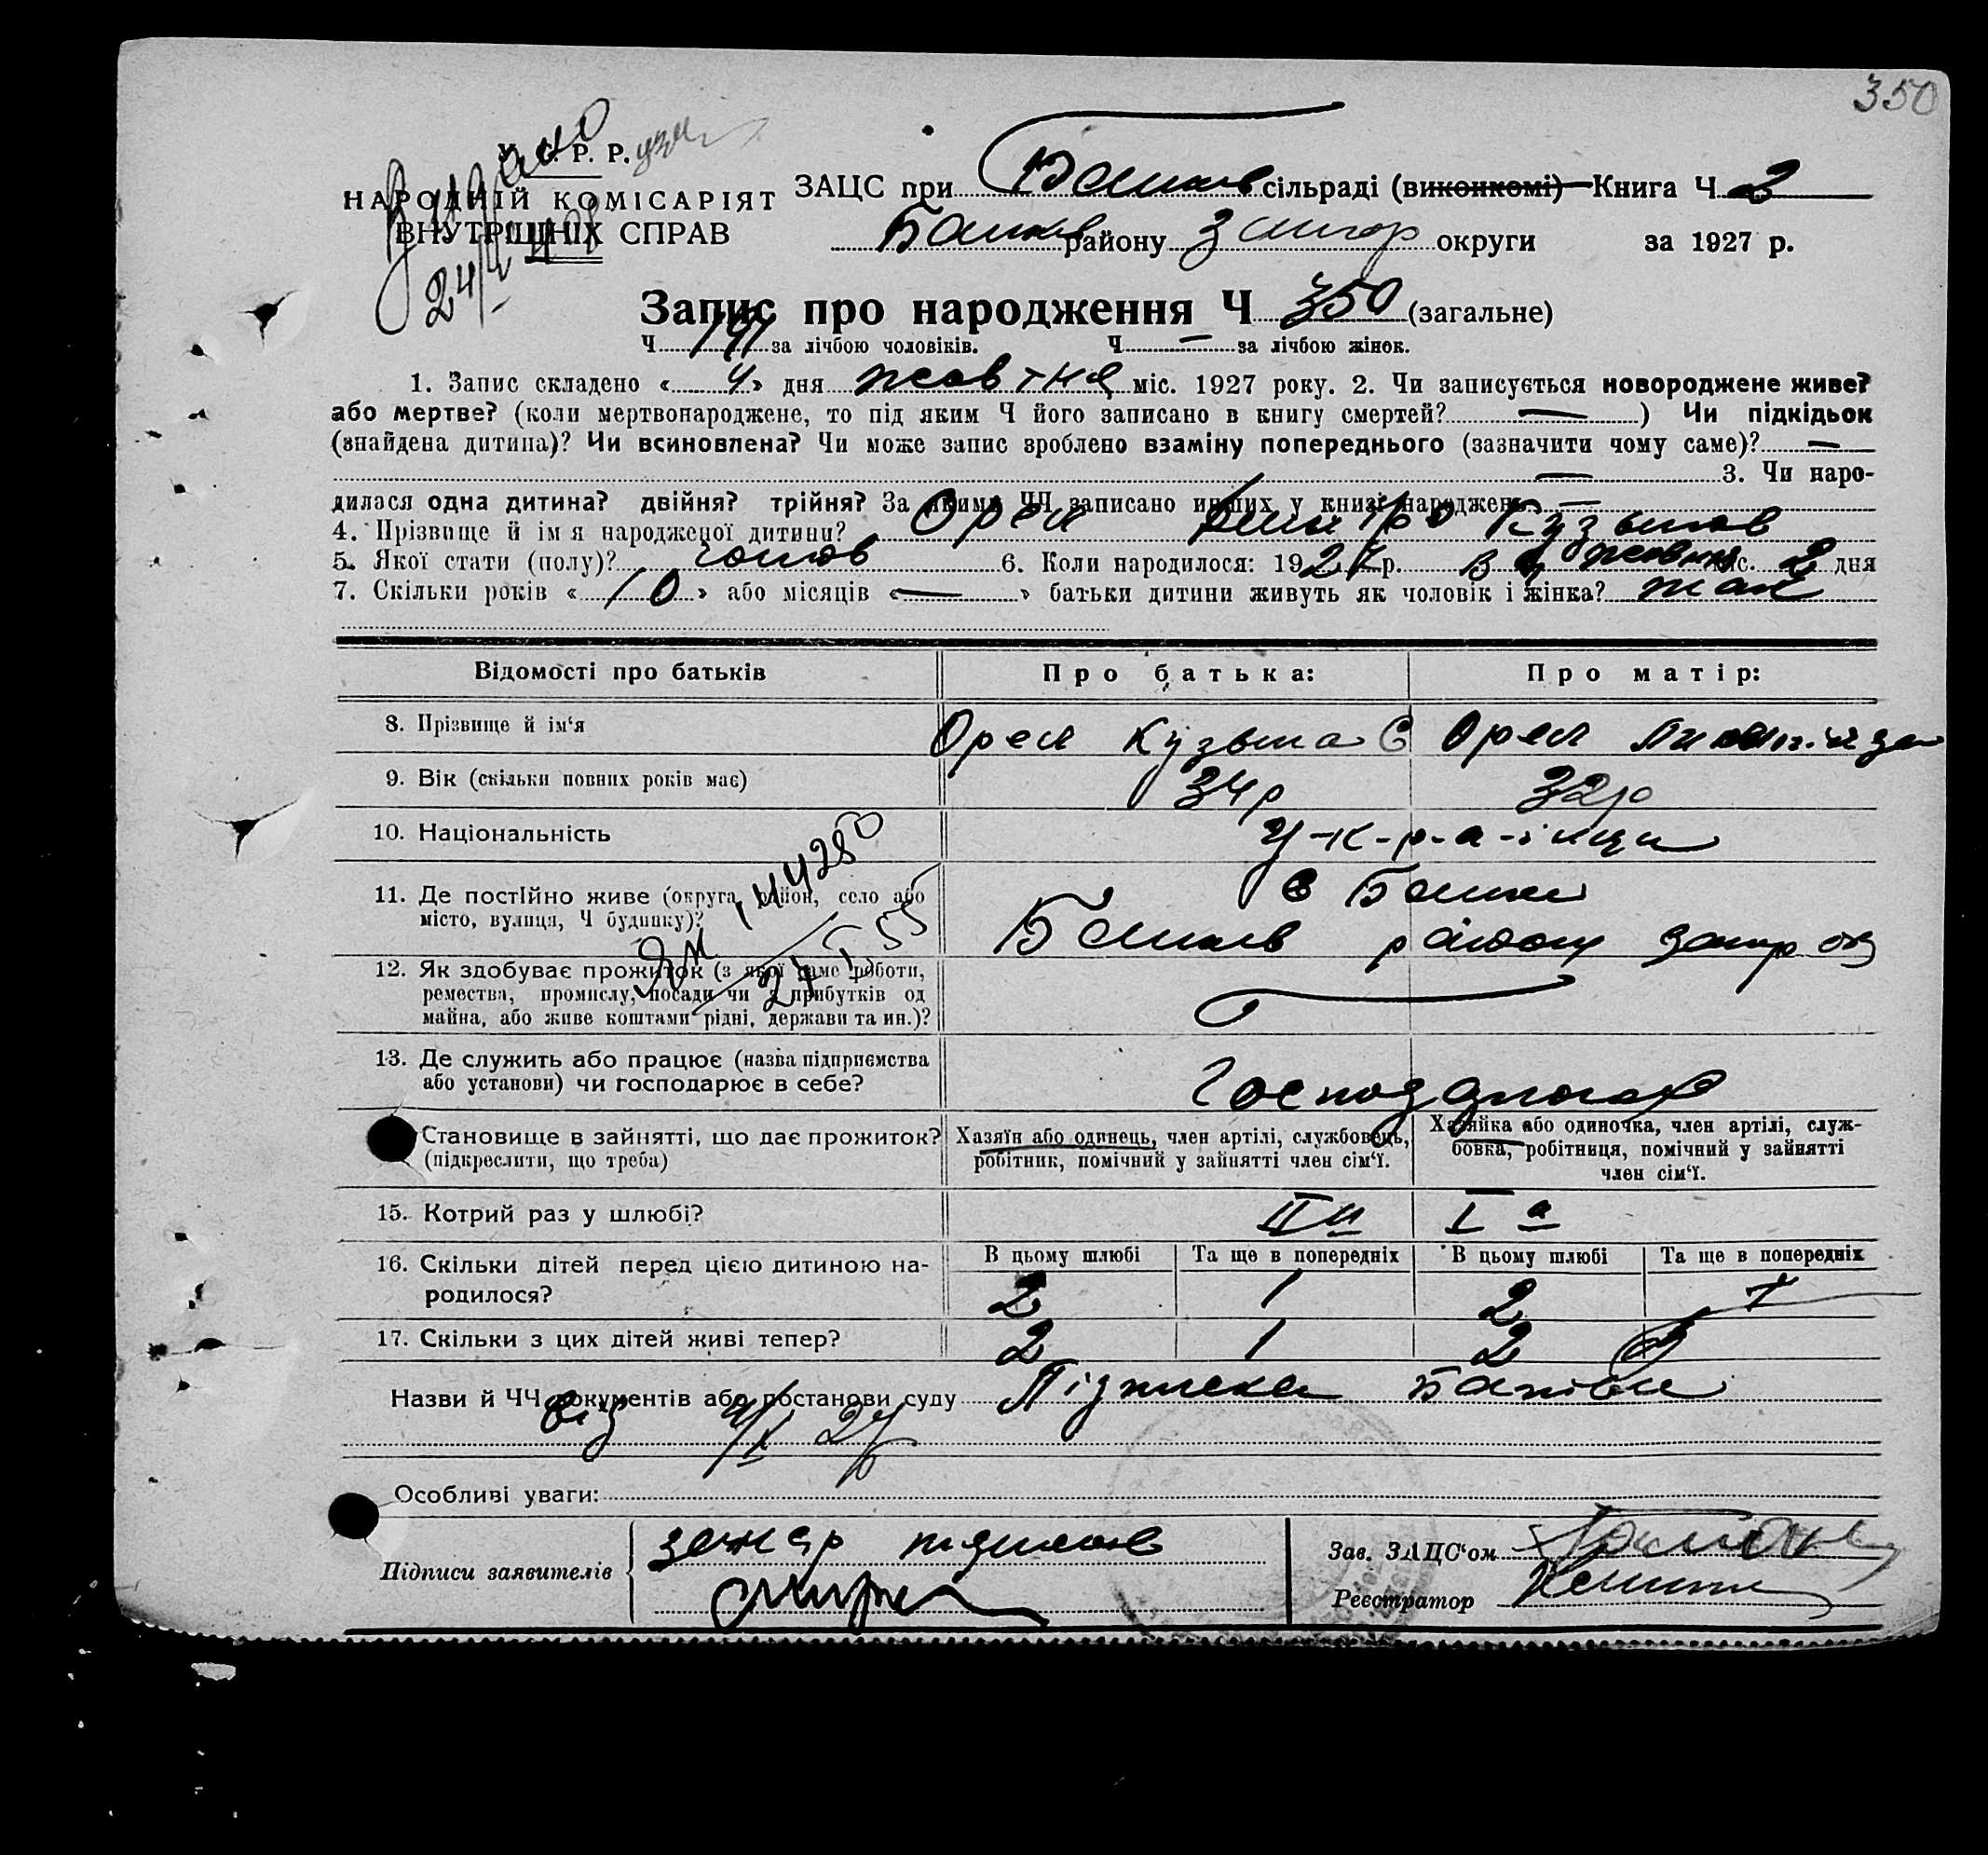 350
У. С. Р. Р.
НАРОДНІЙ КОМІСАРІЯТ
ВНУТРІШНІХ СПРАВ
Видано
ЗАЦС при сільраді (виконкомі) Книга Ч 2
району округи за 1927 р.
Запис про народження Ч 350 (загальне)
Ч 191 за лічбою чоловіків. Ч — за лічбою жінок.
1. Запис складено « 4 » дня жовтня міс. 1927 року. 2. Чи записується новороджене живе?
або мертве? (коли мертвонароджене, то під яким Ч його записано в книгу смертей? — ) Чи підкідьок
(знайдена дитина)? Чи всиновлена? Чи може запис зроблено взаміну попереднього (зазначити чому саме)? —
— 3. Чи наро-
дилася одна дитина? двійня? трійня? За якими ЧЧ записано инших у книзі народжень —
4. Прізвище й ім'я народженої дитини? Орел Дмитро Кузьмов
5. Якої стати (полу)? чолов 6. Коли народилося: 1927 р. жовтня міс. 2 дня
7. Скільки років « 10 » або місяців « — » батьки дитини живуть як чоловік і жінка? так
Відомості про батьків Про батька: Про матір:
8. Прізвище й ім'я Орел Кузьма Є Орел
9. Вік (скільки повних років має) 34 р 32 р
10. Національність У-к-р-а-їнци
11. Де постійно живе (округа, район, село або
місто, вулиця, Ч будинку)? району
12. Як здобуває прожиток (з якої саме роботи,
ремества, промислу, посади чи з прибутків од
майна, або живе коштами рідні, держави та ин.)?
13. Де служить або працює (назва підприємства
або установи) чи господарює в себе?
Становище в зайнятті, що дає прожиток? Хазяїн або одинець, член артілі, службовець, Хазяйка або одиночка, член артілі, служ-
(підкреслити, що треба) робітник, помічний у зайнятті член сім'ї. бовка, робітниця, помічний у зайнятті
член сім'ї.
15. Котрий раз у шлюбі? II й I а
16. Скільки дітей перед цією дитиною на- В цьому шлюбі Та ще в попередніх В цьому шлюбі Та ще в попередніх
родилося? 2 1 2
17. Скільки з цих дітей живі тепер? 2 1 2
Назви й ЧЧ документів або постанови суду Підписка
від 4/X 27
Особливі уваги:
Підписи заявителів
Зав. ЗАЦС'ом
Реєстратор